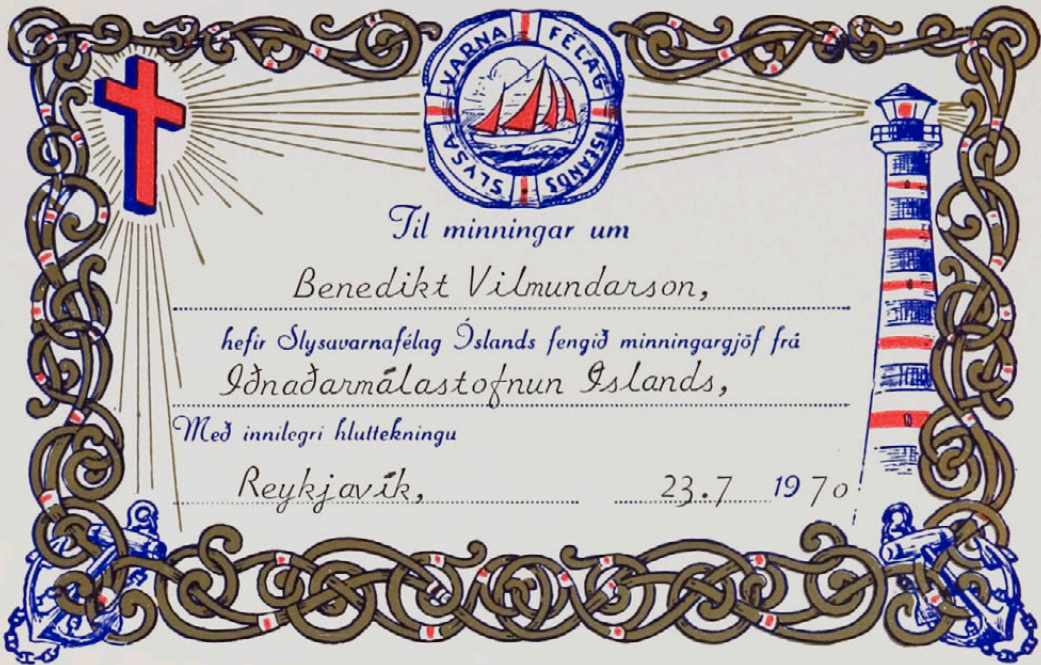 SLYSAVARNAFÉLAG ÍSLANDS
Til minningar um
Benedikt Vilmundarson,
hefir Slysavarnafélag Íslands fengið minningargjöf frá
Iðnaðarmálastofnun Íslands,
Með innilegri hluttekningu
Reykjavík, 23.7 1970